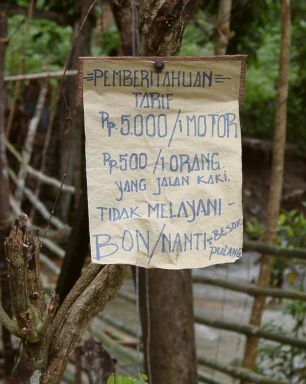 =PEMBERITAHUAN=
TARIF
Rp 5.000/1 MOTOR
Rp 500/1 ORANG
YANG JALAN KAKI.
TIDAK MELAYANI -
BON/NANTI &BESOK
PULANG